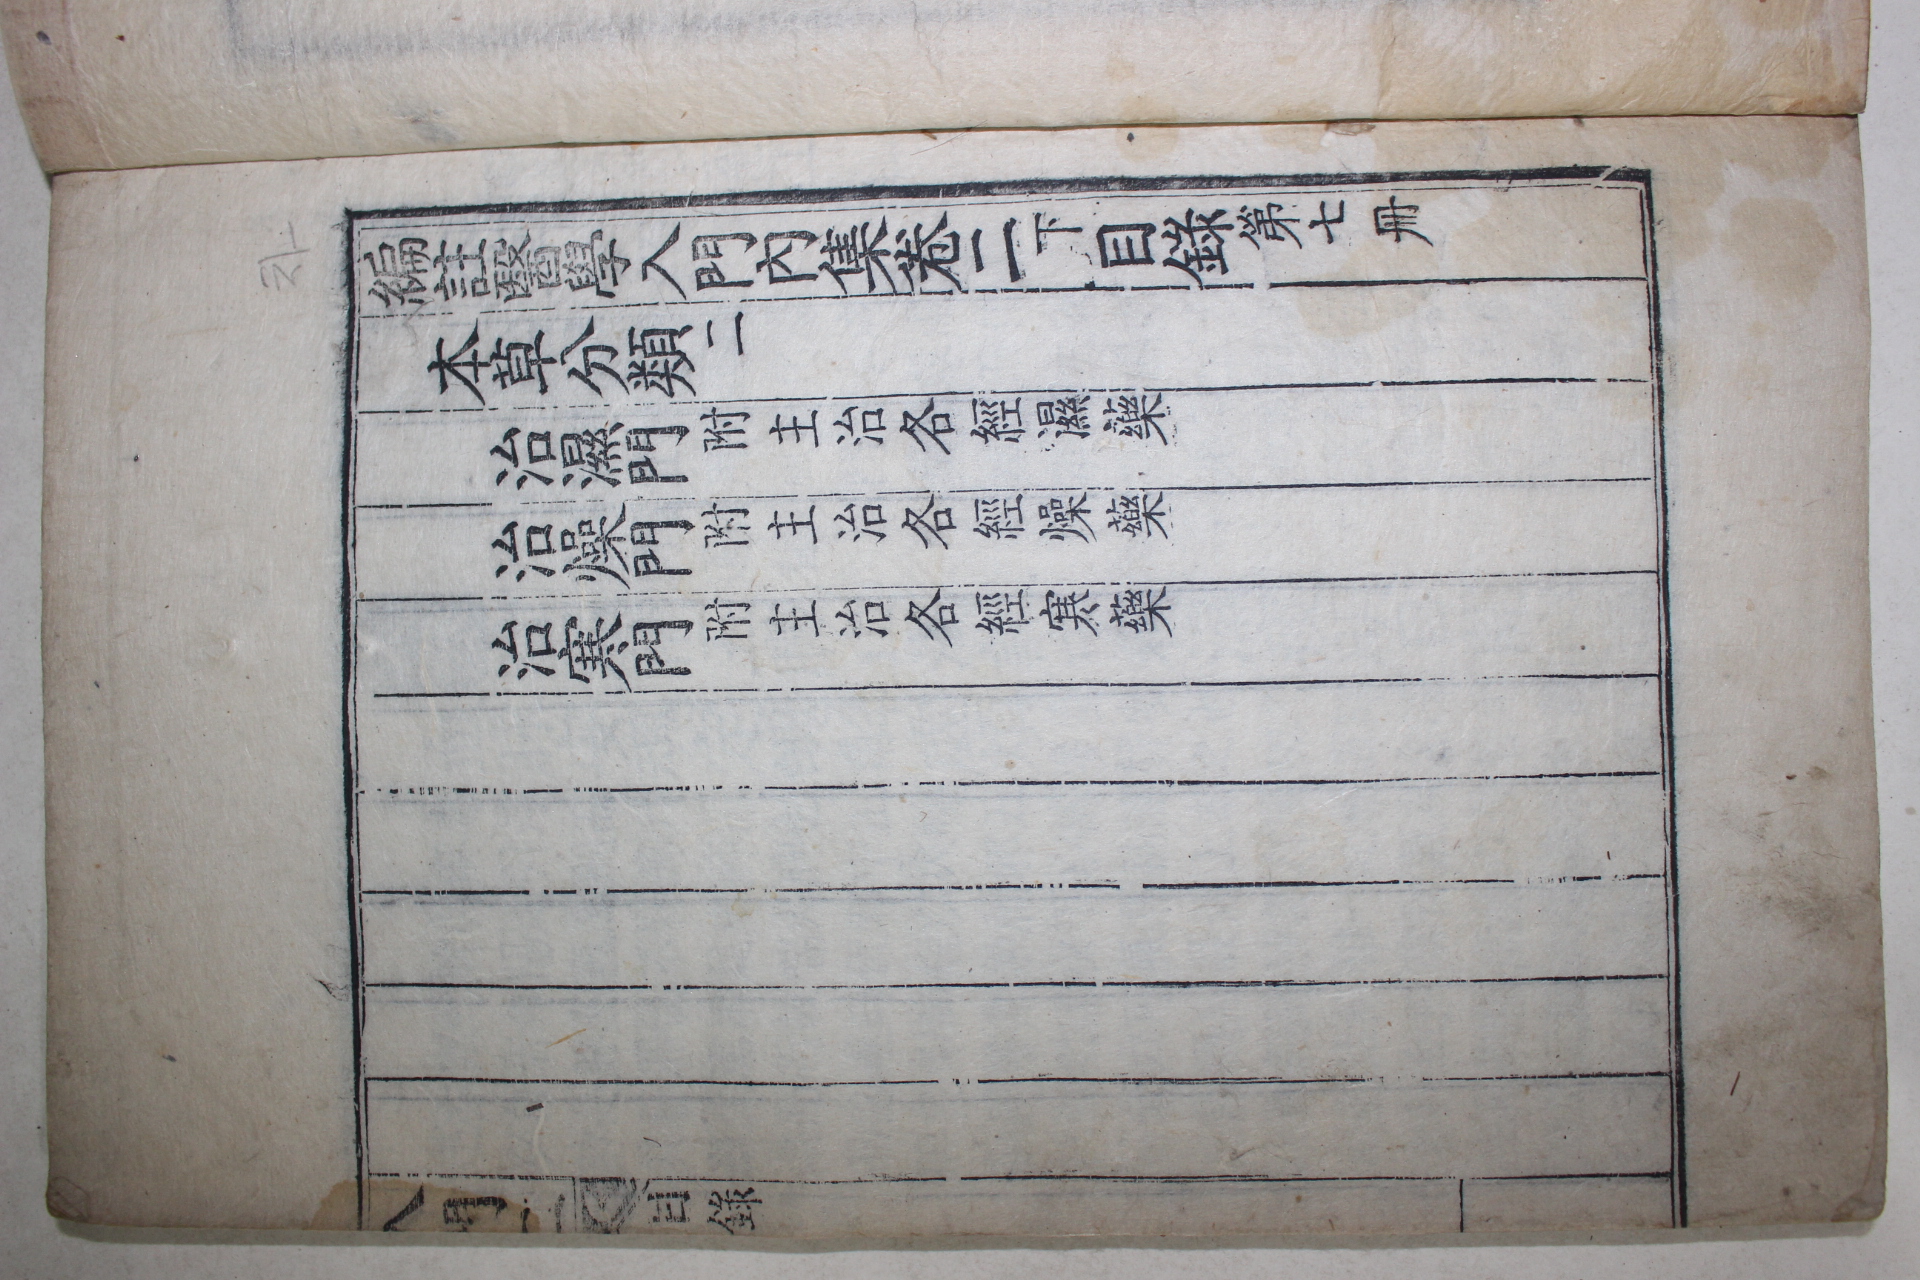 編註醫學入門內集卷二下目錄第七冊
本草分類二
治濕門附主治各經濕藥
治燥門附主治各經燥藥
治寒門附主治各經寒藥
入門二
目錄